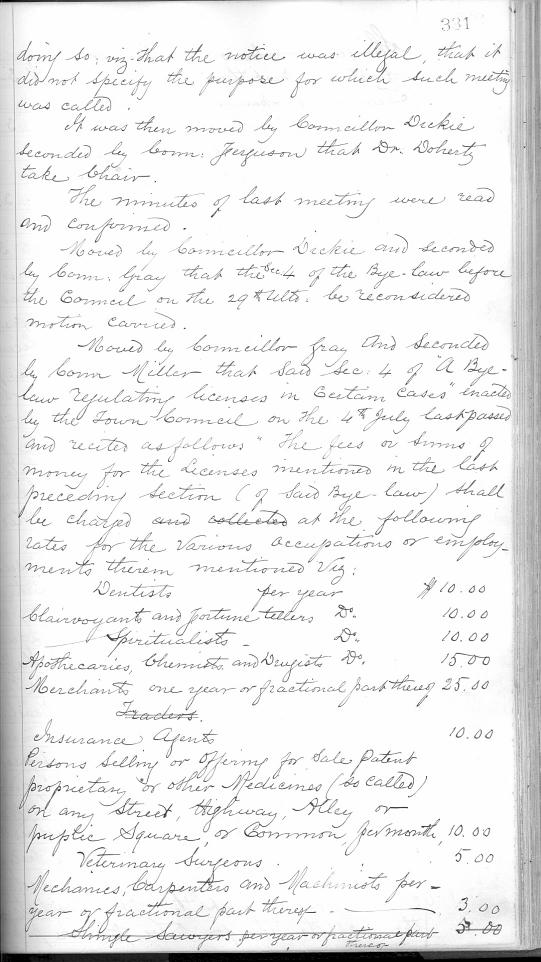 331
doing so; viz. that the notice was illegal, that it
did not specify the purpose for which such meeting
was called.
It was then moved by Councillor Dickie
seconded by Coun: Ferguson that Dr. Doherty
take Chair.
The minutes of last meeting were read
and confirmed.
Moved by Councillor Dickie and seconded
by Coun: Gray that the Sec 4 of the Bye-law before
the Council on the 29th Ulto. be reconsidered
motion carried.
Moved by Councillor Gray And Seconded
by Coun Miller that Said Sec: 4 of "A Bye-
law regulating licenses in Certain Cases" enacted
by the Town Council on the 4th July last passed
and recited as follows "The fees or Sums of
money for the Licenses mentioned in the last
preceding Section (of Said Bye-law) Shall
be charged and collected at the following
rates for the Various occupations or employ-
ments therein mentioned Viz:
Dentists per year $10.00
Clairvoyants and fortune tellers Do. 10.00
Spiritualists - Do. 10.00
Apothecaries, Chemists and Drugists Do. 15.00
Merchants one year or fractional part thereof 25.00
Traders.
Insurance Agents 10.00
Persons Selling or Offering for Sale Patent
proprietary or other Medicines (so called)
on any Street, Highway, Alley or
public Square, or Common, per month, 10.00
Veterinary Surgeons. 5.00
Mechanics, Carpenters and Machinists per-
year or fractional part thereof - 3.00
Shingle Sawyers per year or fractional part thereof 3.00